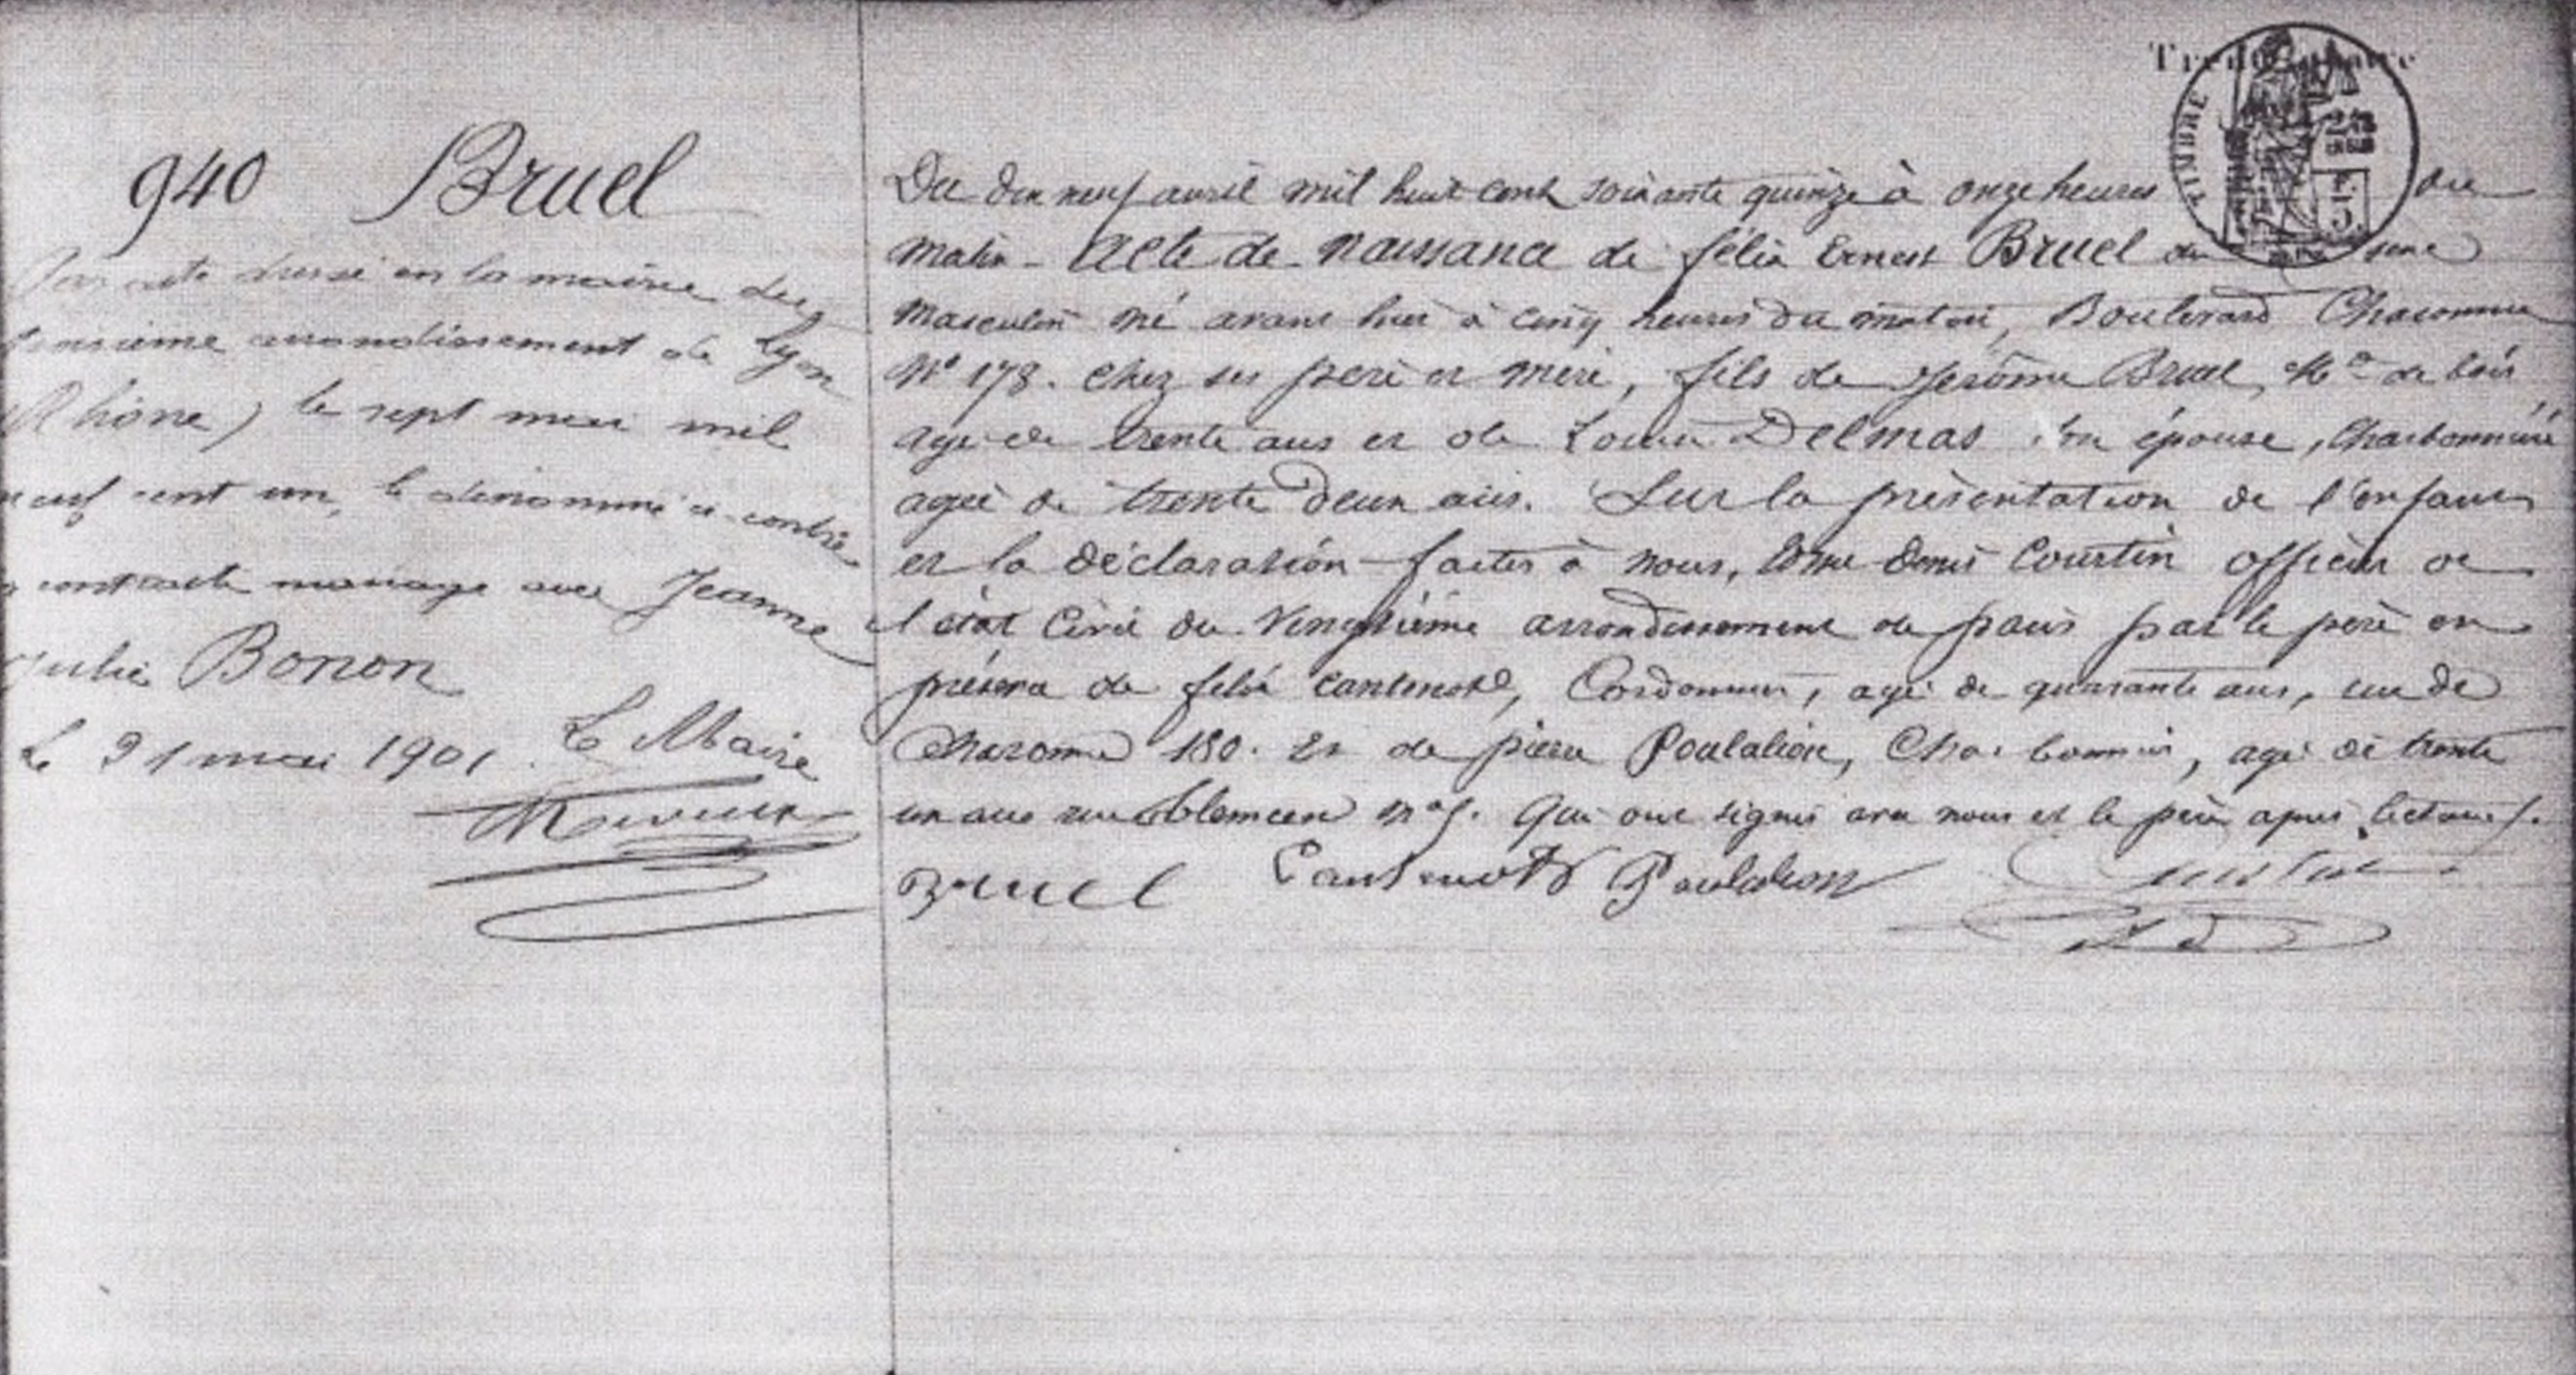 940 Bruel
Par acte dressé en la mairie du
troisième arrondissement de Lyon
(Rhône) le sept mai mil
neuf cent un, le dénommé ci-contre
a contracté mariage avec Jeanne
Julie Bonon
Le 21 mai 1901. Le Maire
TIMBRE
Du dix neuf avril mil huit cent soixante quinze à onze heures du
matin - Acte de Naissance de félix Ernest Bruel du sexe
masculin né avant hier à cinq heures du matin, Boulevard Charonne
N° 178. chez ses père et mère, fils de Jérôme Bruel, Md de bois
agé de trente ans et de Louise Delmas son épouse, Charbonnière
agée de trente deux ans. Sur la présentation de l'enfant
et la déclaration faites à nous, Denis Courtin officier de
l'état Civil du Vingtième arrondissement de paris par le père en
présence de félix Cantenot, Cordonnier, agé de quarante ans, rue de
Charonne 180. Et de pierre Poulalion, Charbonnier, agé de trente
un ans rue n° 5. Qui ont signé avec nous et le père après lecture.
Bruel Cantenot Poulalion Courtin